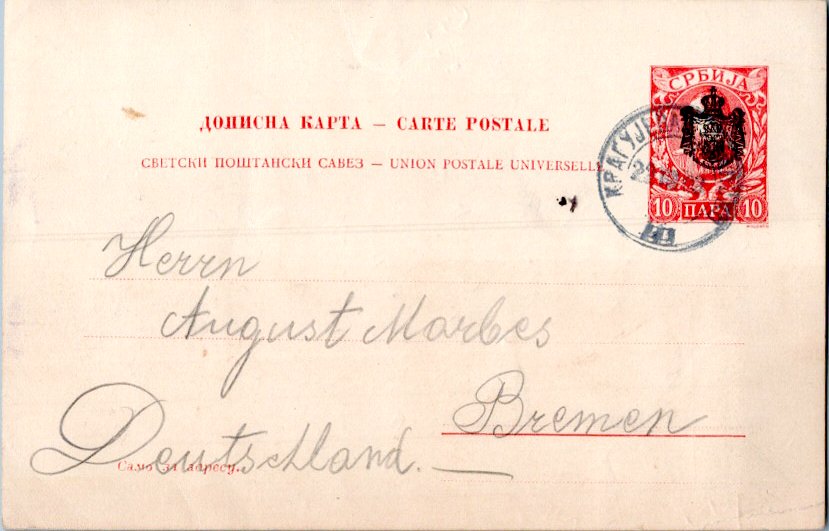 СРБИЈА
10 ПАРА 10
КРАГУЈЕВА
ДОПИСНА КАРТА — CARTE POSTALE
СВЕТСКИ ПОШТАНСКИ САВЕЗ — UNION POSTALE UNIVERSELLE
Herrn
August Marbes
Bremen
Deutschland.
Само за адресу.